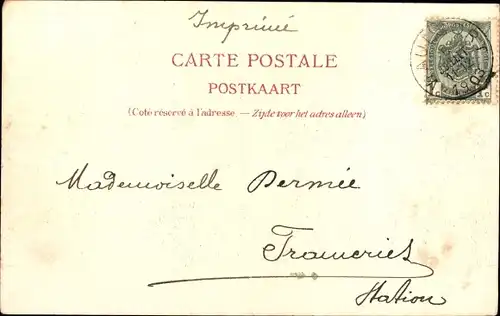 Imprimé
CARTE POSTALE
POSTKAART
(Coté réservé à l'adresse. — Zijde voor het adres alleen)
1903
Mademoiselle Permée
Frameries
Station